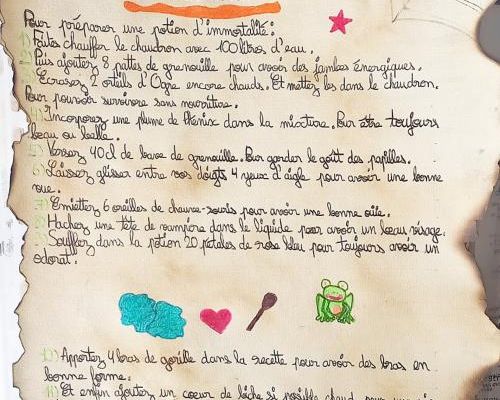 Pour préparer une potion d'immortalité:
1) Faites chauffer le chaudron avec 100 litres d'eau.
2) Puis ajoutez 8 pattes de grenouille pour avoir des jambes énergiques.
3) Ecrasez 2 orteils d'Ogre encore chauds. Et mettez les dans le chaudron.
Pour pouvoir survivre sans nourriture.
4) Incorporez une plume de Phénix dans la mixture. Pour être toujours
beau ou belle.
5) Versez 40cl de bave de grenouille. Pour garder le goût des papilles.
6) Laissez glisser entre vos doigts 4 yeux d'aigle pour avoir une bonne
vue.
7) Emiettez 6 oreilles de chauve-souris pour avoir une bonne ouïe.
8) Hachez une tête de vampire dans le liquide pour avoir un beau visage.
9) Soufflez dans la potion 20 pétales de rose bleu pour toujours avoir un
odorat.
10) Apportez 4 bras de gorille dans la recette pour avoir des bras en
bonne forme.
11) Et enfin ajoutez un coeur de biche si possible chaud pour une vie